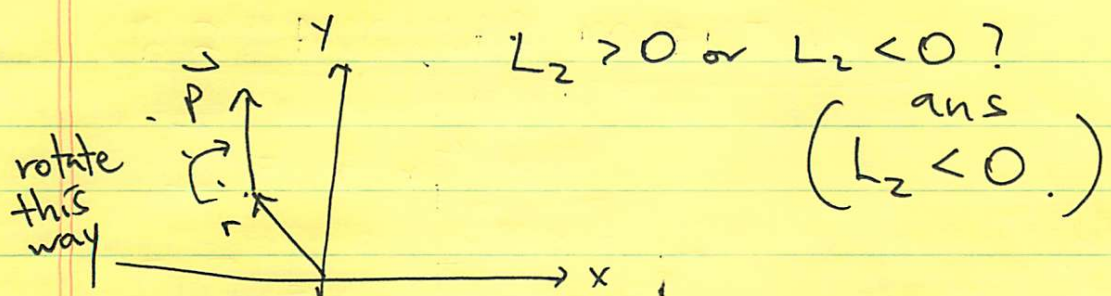 y
L₂ > 0 or L₂ < 0 ?
p⃗
ans
(L₂ < 0.)
rotate
this
way
r
x